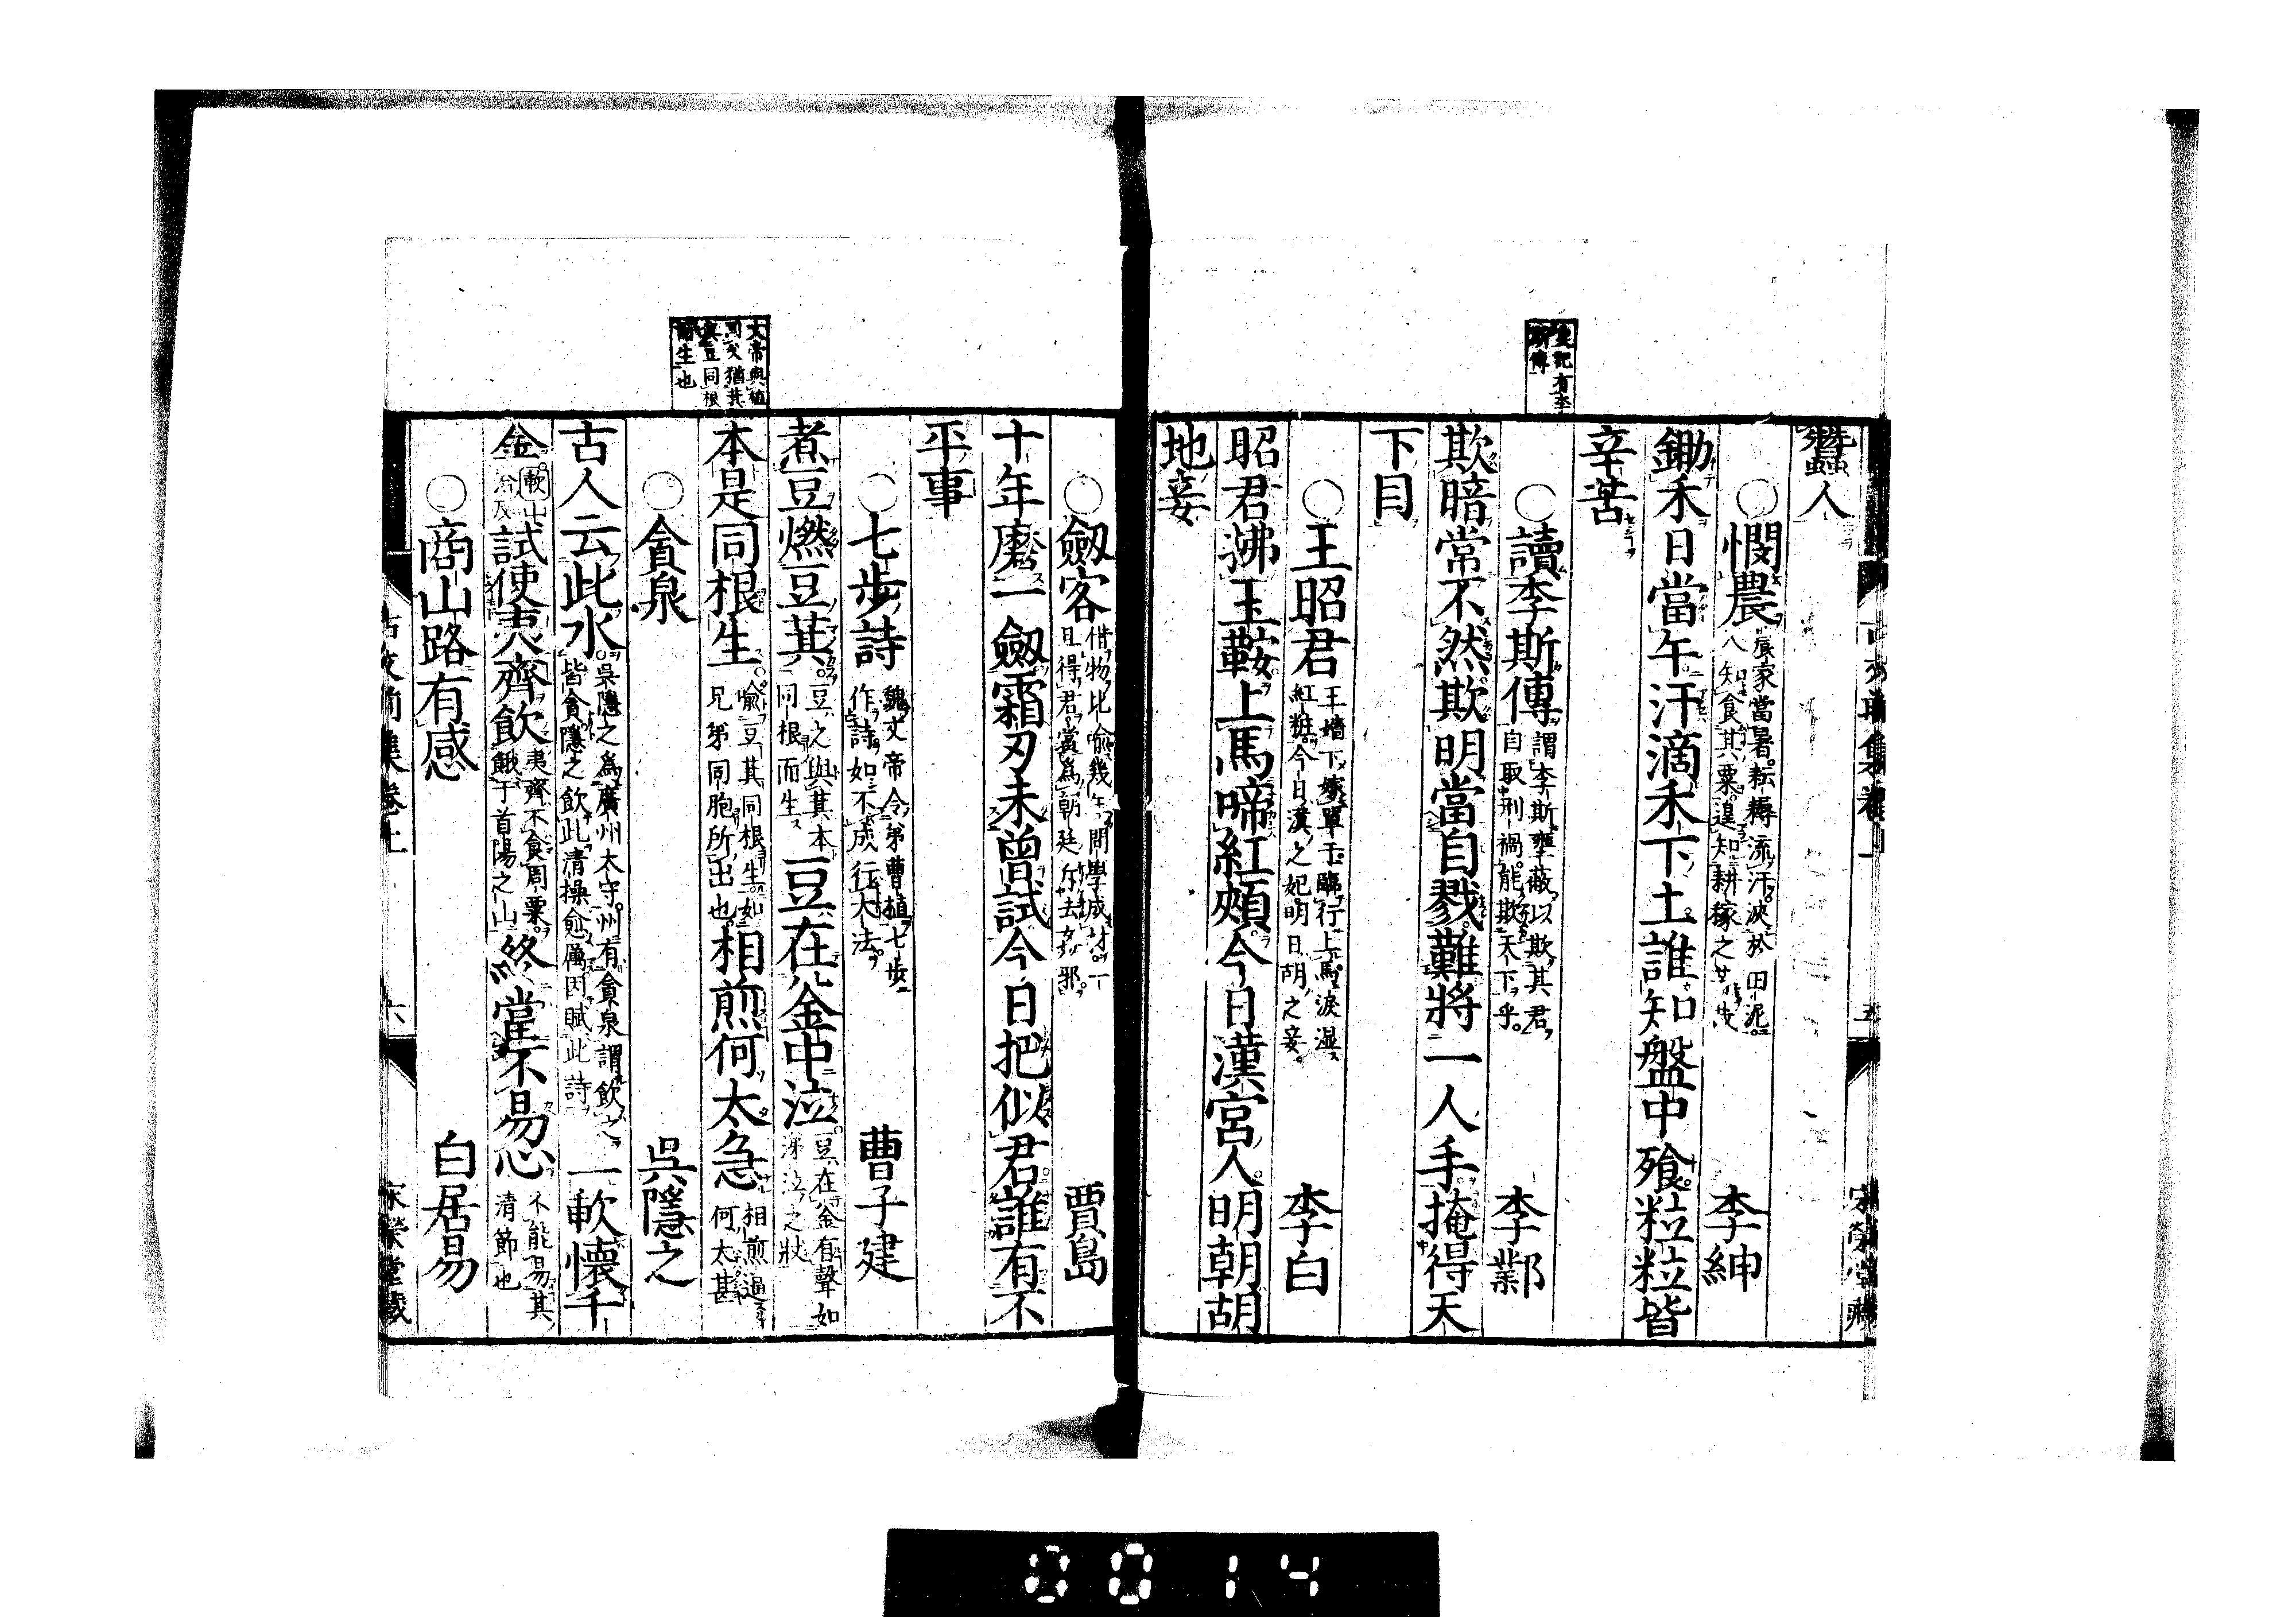 蠶人
○憫農 農家當暑耘耨流汗浹於田泥人知食其粟遑知耕稼之 李紳
鋤禾日當午汗滴禾下土誰知盤中飱粒粒皆
辛苦
○讀李斯傳 謂李斯壅蔽以欺其君自取刑禍能欺天下乎 李鄴
欺暗常不然欺明當自戮難將一人手掩得天
下目
○王昭君 王嬙下嫁單于臨行上馬淚湿紅粧今日漢之妃明日胡之妾 李白
昭君拂玉鞍上馬啼紅頰今日漢宮人明朝胡
地妾
史記有李斯傳
五
○劔客 借物比喻幾年問學成才一旦得君當為朝廷斥去奸邪 賈島
十年磨一劔霜刃未曾試今日把似君誰有不
平事
○七步詩 魏文帝令弟曹植七步作詩如不成行大法 曹子建
煮豆燃豆萁 豆之與萁本同根而生 豆在釜中泣 豆在釜有聲如涕泣之狀
本是同根生 喻豆萁同根生如兄弟同胞所出也 相煎何太急 相煎逼何太甚
○貪泉 吳隱之
古人云此水 吳隱之為廣州太守州有貪泉謂飲之皆貪隱之飲此清操愈厲因賦此詩 一軟懷千
金 試使夷齊飲 夷齊不食周粟餓于首陽之山 終當不易心 不能易其清節也
○商山路有感 白居易
文帝與植同父猶萁與豆同根而生也
六